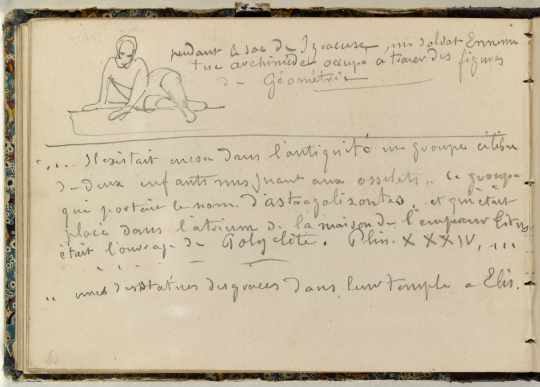 pendant le sac de Syracuse, un soldat Ennemi
tue archimède occupé a tracer des figures
de Géométrie
"... Il existait encore dans l'antiquité un groupe célèbre
de deux enfants nus jouant aux osselets.. Ce groupe
qui portait le nom d'astragalizontes, et qui était
placé dans l'atrium de la maison de l'empereur Titus
était l'ouvrage de Polyclète. Plin. XXXIV, ...
" une des statues des graces dans leur temple a Elis.